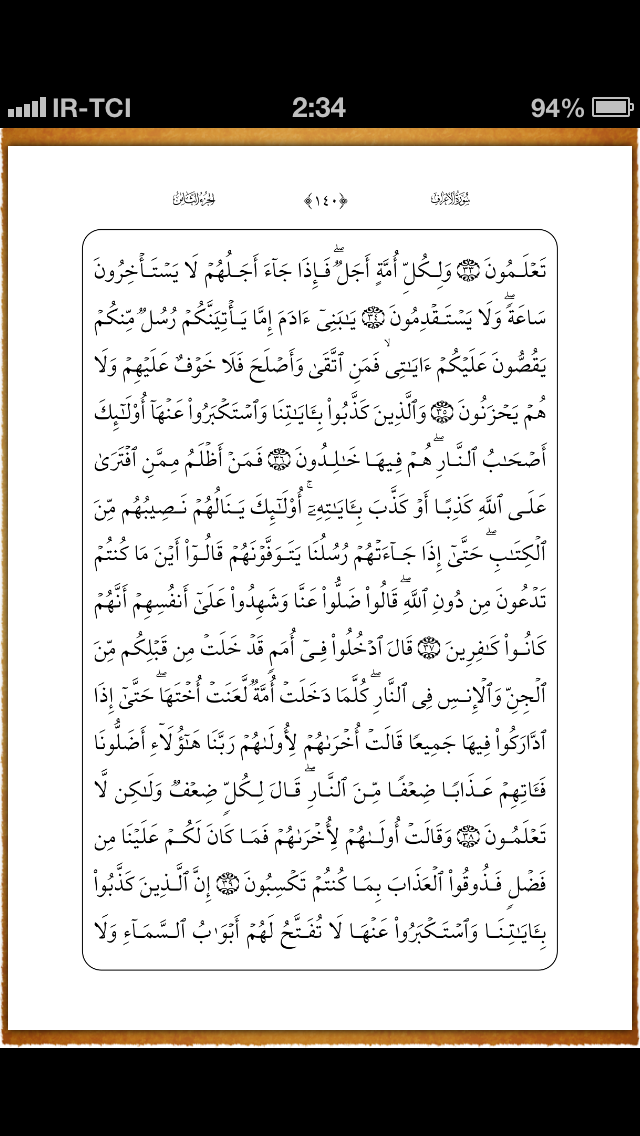 IR-TCI 2:34 94%
سورة الأعراف ﴿١٤٠﴾ الجزء الثامن
تَعۡلَمُونَ ٣٣ وَلِكُلِّ أُمَّةٍ أَجَلٌۖ فَإِذَا جَآءَ أَجَلُهُمۡ لَا يَسۡتَأۡخِرُونَ
سَاعَةٗۖ وَلَا يَسۡتَقۡدِمُونَ ٣٤ يَٰبَنِيٓ ءَادَمَ إِمَّا يَأۡتِيَنَّكُمۡ رُسُلٞ مِّنكُمۡ
يَقُصُّونَ عَلَيۡكُمۡ ءَايَٰتِي ۙ فَمَنِ ٱتَّقَىٰ وَأَصۡلَحَ فَلَا خَوۡفٌ عَلَيۡهِمۡ وَلَا
هُمۡ يَحۡزَنُونَ ٣٥ وَٱلَّذِينَ كَذَّبُواْ بِـَٔايَٰتِنَا وَٱسۡتَكۡبَرُواْ عَنۡهَآ أُوْلَٰٓئِكَ
أَصۡحَٰبُ ٱلنَّارِۖ هُمۡ فِيهَا خَٰلِدُونَ ٣٦ فَمَنۡ أَظۡلَمُ مِمَّنِ ٱفۡتَرَىٰ
عَلَى ٱللَّهِ كَذِبًا أَوۡ كَذَّبَ بِـَٔايَٰتِهِۦٓۚ أُوْلَٰٓئِكَ يَنَالُهُمۡ نَصِيبُهُم مِّنَ
ٱلۡكِتَٰبِۖ حَتَّىٰٓ إِذَا جَآءَتۡهُمۡ رُسُلُنَا يَتَوَفَّوۡنَهُمۡ قَالُوٓاْ أَيۡنَ مَا كُنتُمۡ
تَدۡعُونَ مِن دُونِ ٱللَّهِۖ قَالُواْ ضَلُّواْ عَنَّا وَشَهِدُواْ عَلَىٰٓ أَنفُسِهِمۡ أَنَّهُمۡ
كَانُواْ كَٰفِرِينَ ٣٧ قَالَ ٱدۡخُلُواْ فِيٓ أُمَمٖ قَدۡ خَلَتۡ مِن قَبۡلِكُم مِّنَ
ٱلۡجِنِّ وَٱلۡإِنسِ فِي ٱلنَّارِۖ كُلَّمَا دَخَلَتۡ أُمَّةٞ لَّعَنَتۡ أُخۡتَهَاۖ حَتَّىٰٓ إِذَا
ٱدَّارَكُواْ فِيهَا جَمِيعٗا قَالَتۡ أُخۡرَىٰهُمۡ لِأُولَىٰهُمۡ رَبَّنَا هَٰٓؤُلَآءِ أَضَلُّونَا
فَـَٔاتِهِمۡ عَذَابٗا ضِعۡفٗا مِّنَ ٱلنَّارِۖ قَالَ لِكُلّٖ ضِعۡفٞ وَلَٰكِن لَّا
تَعۡلَمُونَ ٣٨ وَقَالَتۡ أُولَىٰهُمۡ لِأُخۡرَىٰهُمۡ فَمَا كَانَ لَكُمۡ عَلَيۡنَا مِن
فَضۡلٖ فَذُوقُواْ ٱلۡعَذَابَ بِمَا كُنتُمۡ تَكۡسِبُونَ ٣٩ إِنَّ ٱلَّذِينَ كَذَّبُواْ
بِـَٔايَٰتِنَا وَٱسۡتَكۡبَرُواْ عَنۡهَا لَا تُفَتَّحُ لَهُمۡ أَبۡوَٰبُ ٱلسَّمَآءِ وَلَا